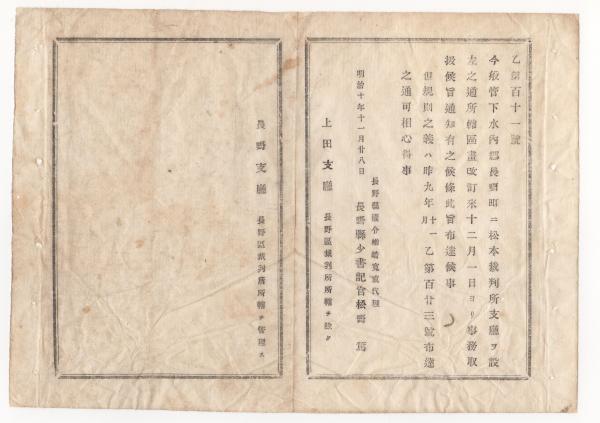 乙第百十一號
今般管下水內郡長野町ニ松本裁判所支廳ヲ設
左之通所轄區畫改訂來十二月一日ヨリ事務取
扱候旨通知有之候條此旨布達候事
但規則之義ハ昨九年十一月乙第百廿三號布達
之通可相心得事
明治十年十一月廿八日
長野縣權令楢崎寬直代理
長野縣少書記官松野篤
上田支廳 長野區裁判所所轄ヲ除ク
長野支廳 長野區裁判所所轄ヲ管理ス